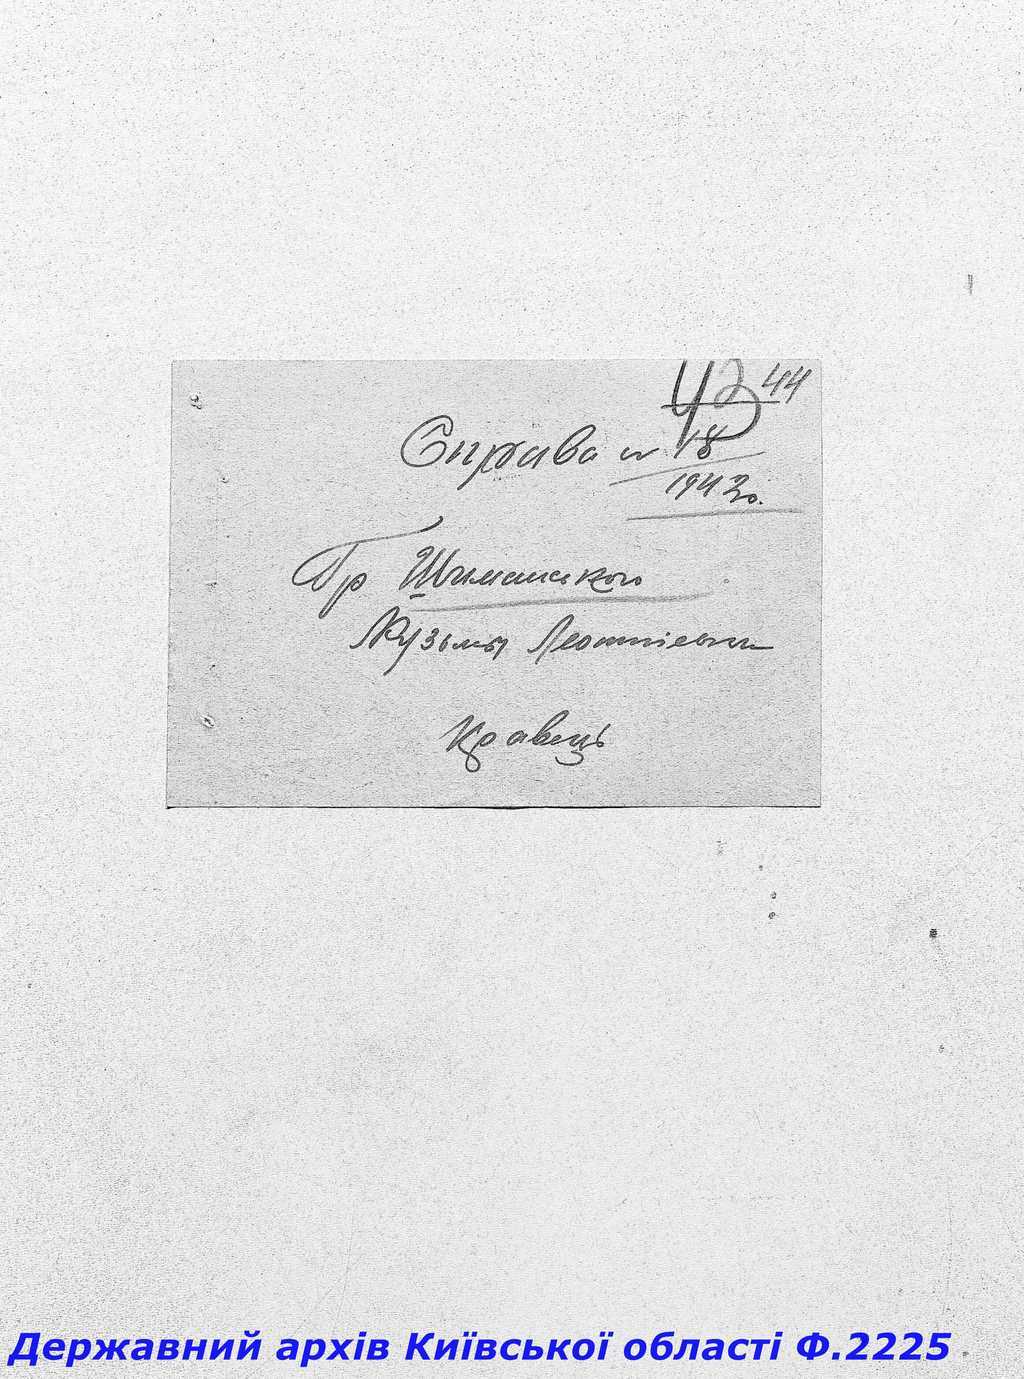 43 44
Справа № 18
1942 р.
Гр Шиманського
Кузьми
Кравець
Державний архів Київської області Ф.2225